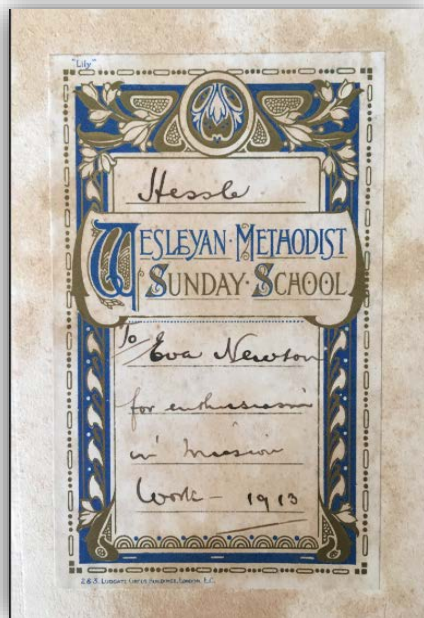 "Lily"
Hessle
WESLEYAN·METHODIST
SUNDAY·SCHOOL
To Eva Newton
for enthusiasm
in Mission
Work - 1913
2 & 3, LUDGATE CIRCUS BUILDINGS, LONDON, E.C.